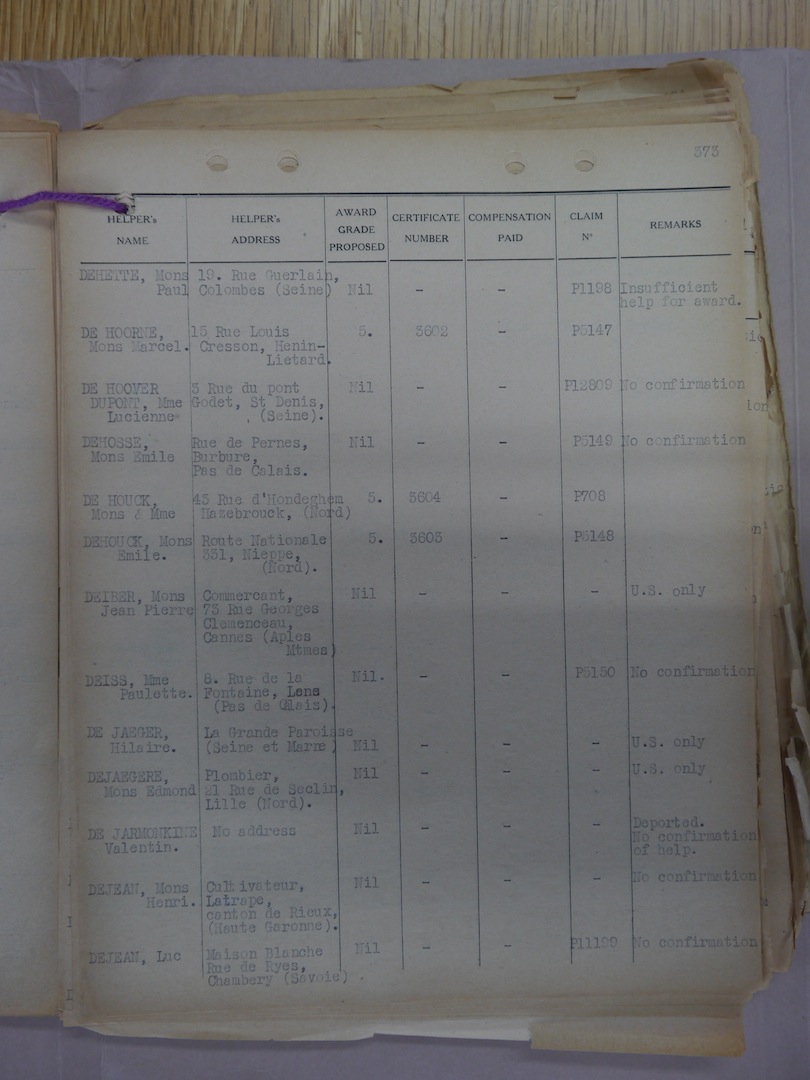 373
HELPER's NAME | HELPER's ADDRESS | AWARD GRADE PROPOSED | CERTIFICATE NUMBER | COMPENSATION PAID | CLAIM Nº | REMARKS
DEHETTE, Mons 19. Rue Guerlain,
Paul Colombes (Seine) Nil - - P1198 Insufficient
help for award.
DE HOORNE, 15 Rue Louis 5. 3602 - P5147
Mons Marcel. Cresson, Henin-
Lietard.
DE HOOVER 3 Rue du pont Nil - - P12809 No confirmation
DUPONT, Mme Godet, St Denis,
Lucienne (Seine).
DEHOSSE, Rue de Pernes, Nil - - P5149 No confirmation
Mons Emile Burbure,
Pas de Calais.
DE HOUCK, 43 Rue d'Hondeghem 5. 3604 - P708
Mons & Mme Hazebrouck, (Nord)
DEHOUCK, Mons Route Nationale 5. 3603 - P5148
Emile. 331, Nieppe,
(Nord).
DEIBER, Mons Commercant, Nil - - - U.S. only
Jean Pierre 73 Rue Georges
Clemenceau,
Cannes (Aples
Mtmes)
DEISS, Mme 8. Rue de la Nil. - - P5150 No confirmation
Paulette. Fontaine, Lens
(Pas de Calais).
DE JAEGER, La Grande Paroisse
Hilaire. (Seine et Marne) Nil - - - U.S. only
DEJAEGERE, Plombier, Nil - - - U.S. only
Mons Edmond 21 Rue de Seclin,
Lille (Nord).
DE JARMONKINE No address Nil - - - Deported.
Valentin. No confirmation
of help.
DEJEAN, Mons Cultivateur, Nil - - - No confirmation
Henri. Latrape,
canton de Rieux,
(Haute Garonne).
DEJEAN, Luc Maison Blanche Nil - - P11199 No confirmation
Rue de Ryes,
Chambery (Savoie)